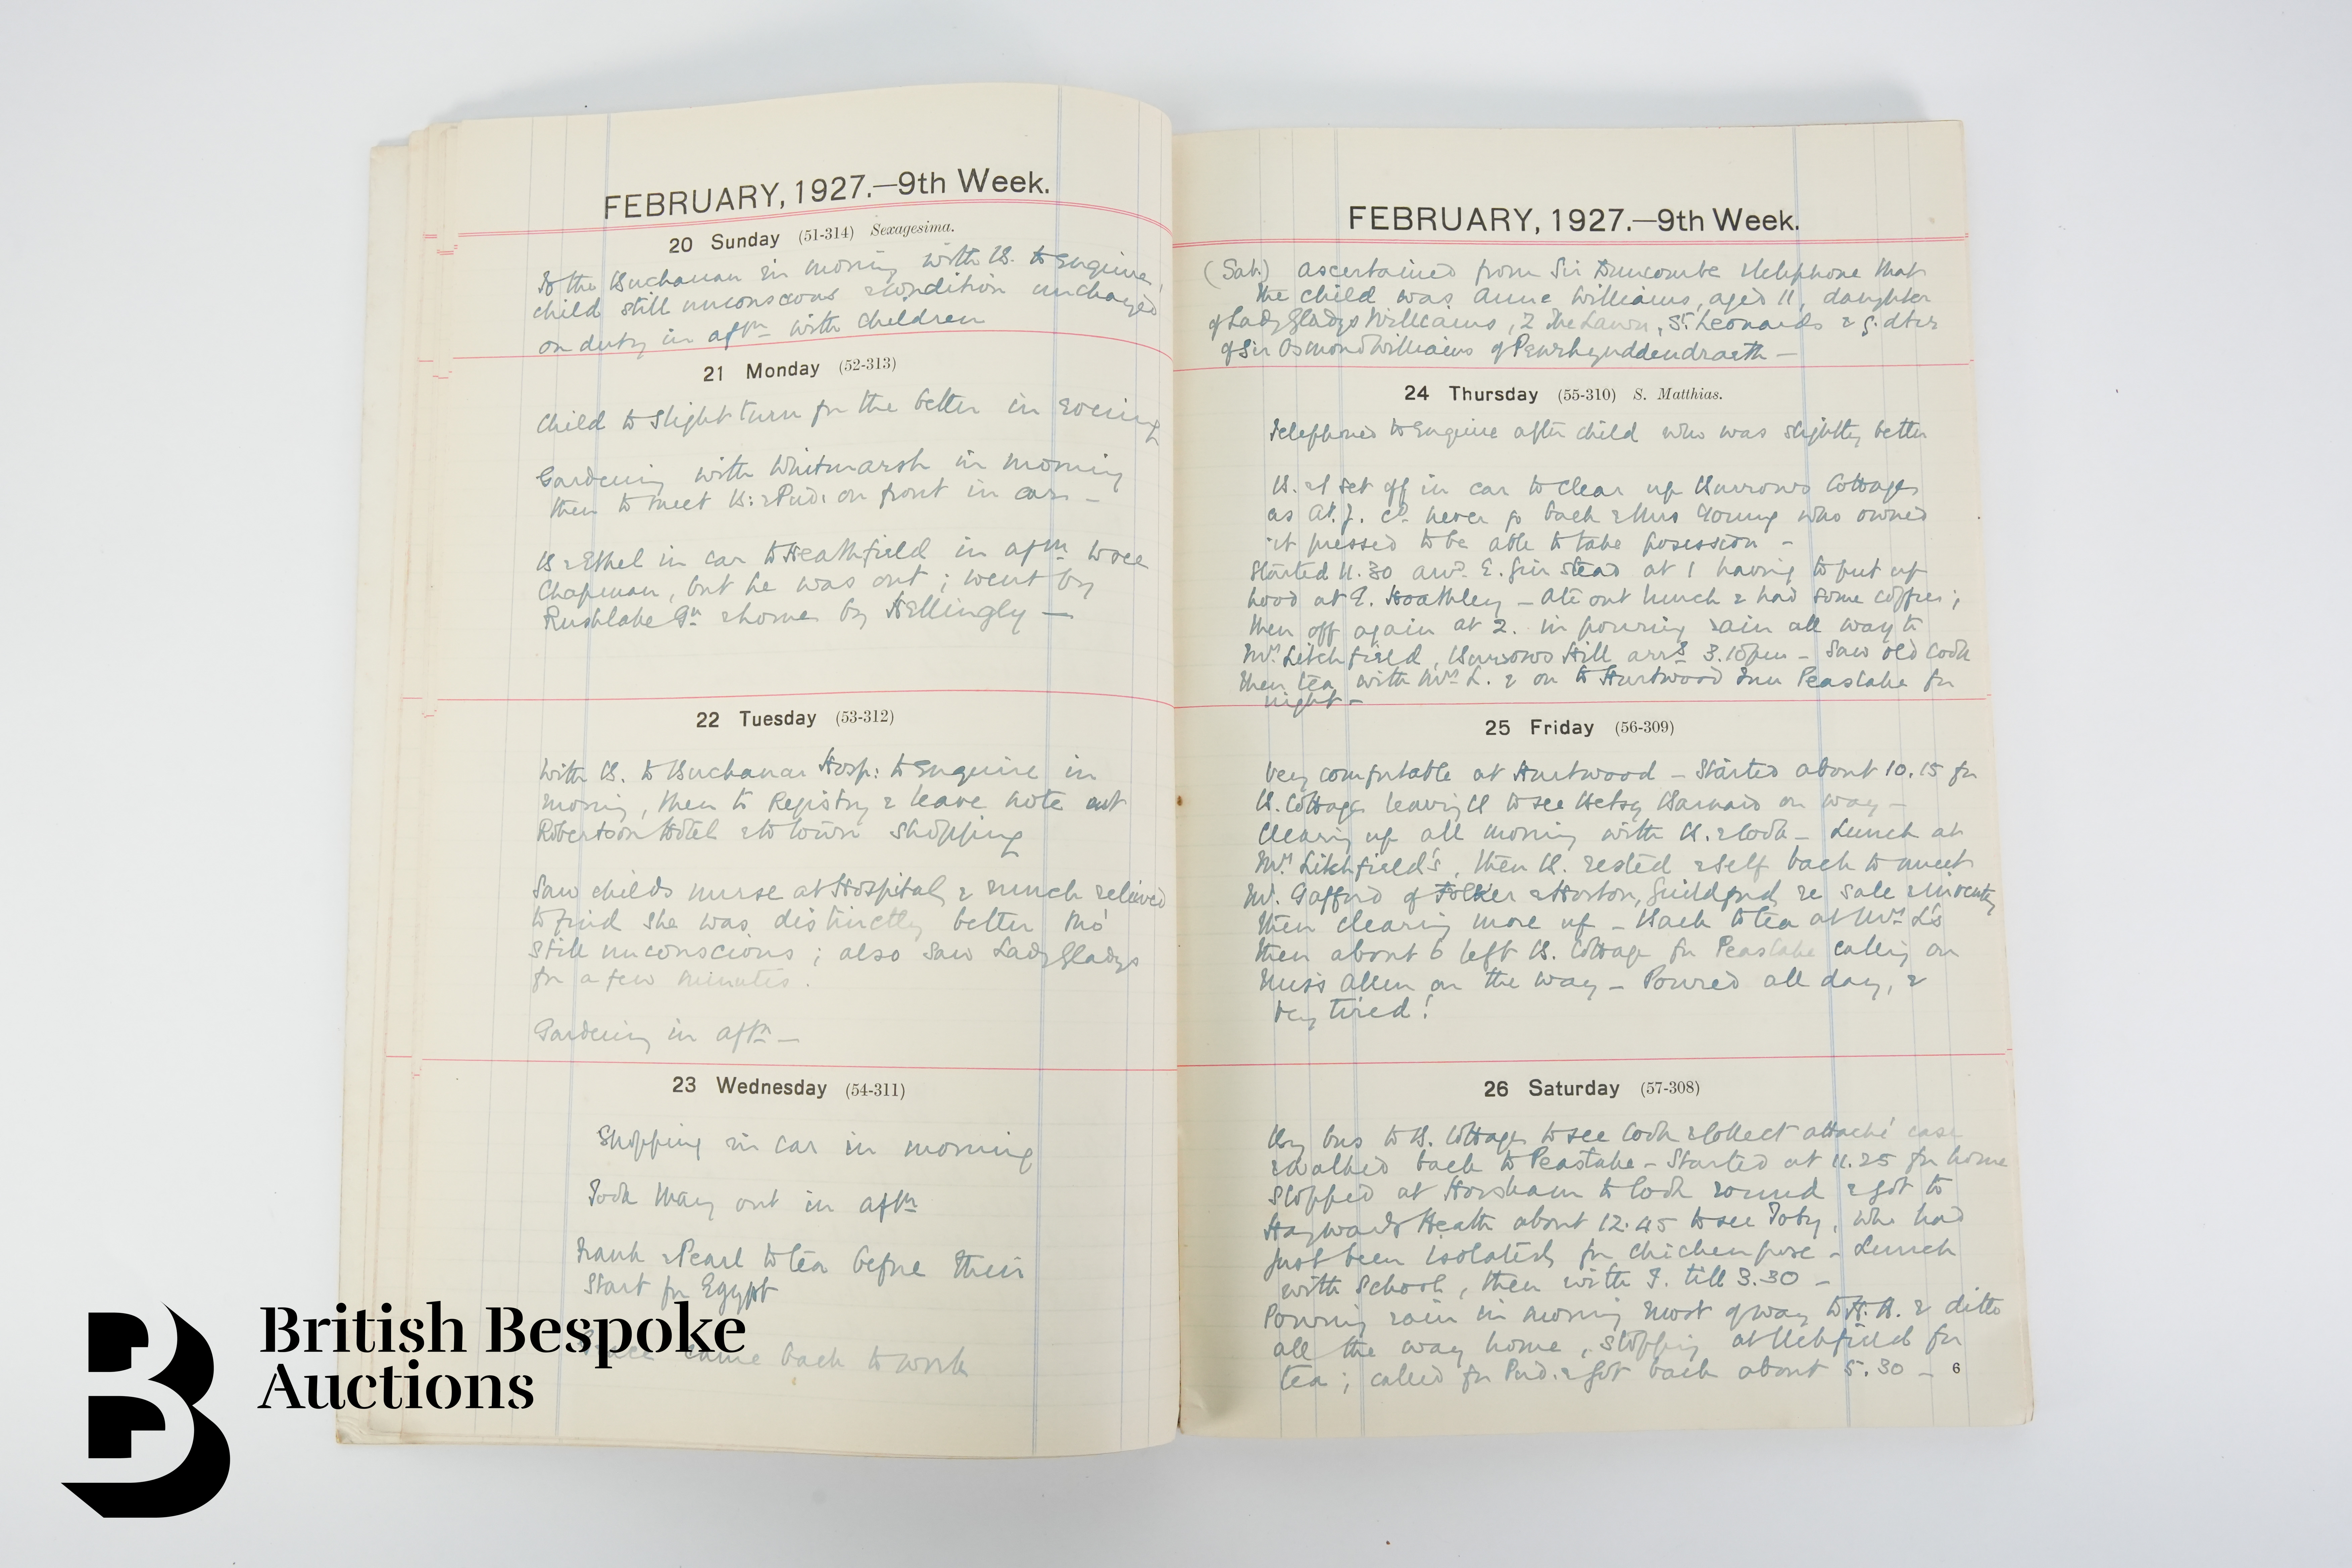 FEBRUARY, 1927.—9th Week.
20 Sunday (51-314) Sexagesima.
To the Buchanan in morning with B. to enquire,
child still unconscious & condition unchanged
on duty in aftn with children
21 Monday (52-313)
Child to slight turn for the better in evening
Gardening with Whitmarsh in morning
then to meet B: & Pud: on front in car —
B & Ethel in car to Heathfield in aftn to see
Chapman, but he was out; went by
Rushlake Gn & home by Hellingly —
22 Tuesday (53-312)
With B. to Buchanan Hosp: to enquire in
morning, then to Registry & leave note at
Robertson Hotel & to town shopping
Saw childs nurse at Hospital, & much relieved
to find she was distinctly better tho'
still unconscious; also saw Lady Gladys
for a few minutes.
Gardening in aftn —
23 Wednesday (54-311)
Shopping in car in morning
Took May out in aftn
Frank & Pearl to tea before their
start for Egypt
came back to work
FEBRUARY, 1927.—9th Week.
(Sat.) ascertained from Sir Duncombe & telephone that
the child was Anne Williams, aged 11, daughter
of Lady Gladys Williams, 2 The Lawn, St. Leonards & g. dter
of Sir Osmond Williams of Penrhynddendraeth —
24 Thursday (55-310) S. Matthias.
Telephoned to enquire after child who was slightly better
B. & I set off in car to clear up Burrows Cottage
as At. J. cd. never go back & Mrs Young who owned
it pressed to be able to take posession —
Started 11.30 arrd. E. Grinstead at 1 having to put up
hood at E. Hoathley — Ate out lunch & had some coffee;
then off again at 2. in pouring rain all way to
Mrs Litchfield, Burrows Hill arrd 3.15pm — Saw old Cook
then tea with Mrs L. & on to Hurtwood Inn Peaslake for
night —
25 Friday (56-309)
Very comfortable at Hurtwood — Started about 10.15 for
B. Cottage leaving B to see Betsy Barnard on way —
Clearing up all morning with B. & Cook — Lunch at
Mrs Litchfield's, then B. rested & self back to meet
Mr. Gafford of Folker & Horton, Guildford re sale & inventy
then clearing more up — Back to tea at Mrs L's
then about 6 left B. Cottage for Peaslake calling on
Miss Allen on the way — Poured all day, &
very tired!
26 Saturday (57-308)
By bus to B. Cottage to see Cook & collect attaché case
& walked back to Peaslake — Started at 11.25 for home
stopped at Horsham to look round & got to
Haywards Heath about 12.45 to see Toby, who had
just been isolated for chicken pox — Lunch
with School, then with T. till 3.30 —
Pouring rain in morning most of way to H.H. & ditto
all the way home, stopping at Uckfield for
tea; called for Pud. & got back about 5.30 —
6
British Bespoke
Auctions